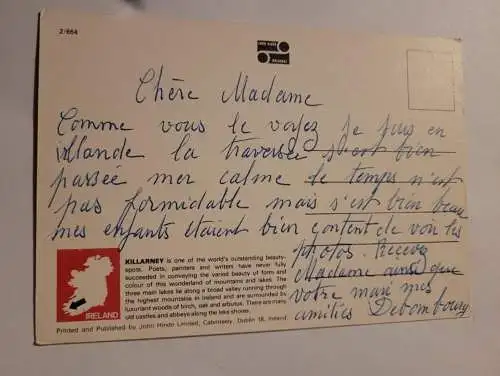 2/664
JOHN HINDE
ORIGINAL
Chère Madame
Comme vous le voyez je suis en
irlande la traversée s'est bien
passée mer calme le temps n'est
pas formidable mais s'est bien beau
mes enfants étaient bien content de voir les
photos. Recevez
Madame ainsi que
votre mari mes
amitiés Debombourg
KILLARNEY is one of the world's outstanding beauty-
spots. Poets, painters and writers have never fully
succeeded in conveying the varied beauty of form and
colour of this wonderland of mountains and lakes. The
three main lakes lie along a broad valley running through
the highest mountains in Ireland and are surrounded by
luxuriant woods of birch, oak and arbutus. There are many
old castles and abbeys along the lake shores.
IRELAND
Printed and Published by John Hinde Limited, Cabinteely, Dublin 18, Ireland